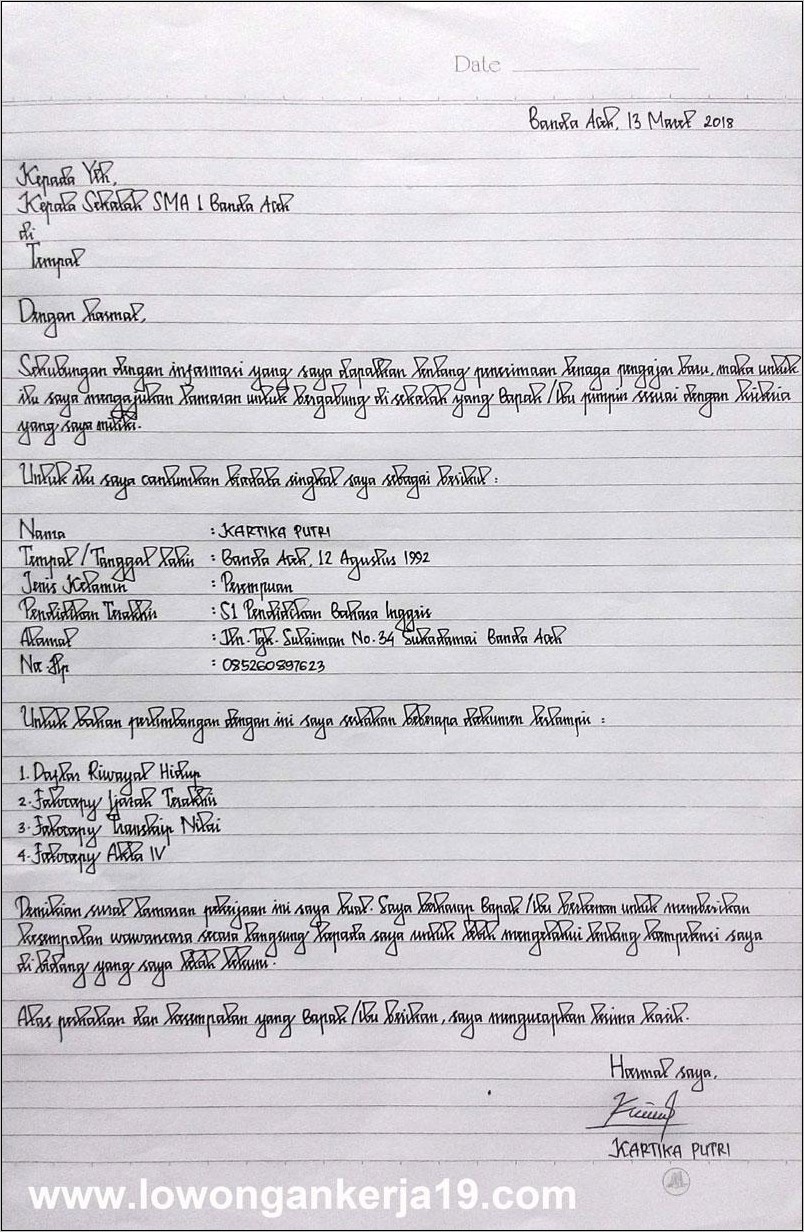 Date
Banda Aceh, 13 Maret 2018
Kepada Yth,
Kepala Sekolah SMA 1 Banda Aceh
di
Tempat
Dengan hormat,
Sehubungan dengan informasi yang saya dapatkan tentang penerimaan tenaga pengajar baru, maka untuk
itu saya mengajukan lamaran untuk bergabung di sekolah yang Bapak/Ibu pimpin sesuai dengan kriteria
yang saya miliki.
Untuk itu saya cantumkan biodata singkat saya sebagai berikut :
Nama : KARTIKA PUTRI
Tempat/Tanggal Lahir : Banda Aceh, 12 Agustus 1992
Jenis Kelamin : Perempuan
Pendidikan Terakhir : S1 Pendidikan Bahasa Inggris
Alamat : Jln. Tgk. Sulaiman No. 34 Sukadamai Banda Aceh
No. Hp : 085260897623
Untuk bahan pertimbangan dengan ini saya sertakan beberapa dokumen terlampir :
1. Daftar Riwayat Hidup
2. Fotocopy Ijazah Terakhir
3. Fotocopy Transkip Nilai
4. Fotocopy Akta IV
Demikian surat lamaran pekerjaan ini saya buat. Saya berharap Bapak/Ibu berkenan untuk memberikan
kesempatan wawancara secara langsung kepada saya untuk lebih mengetahui tentang kompetensi saya
di bidang yang saya telah tekuni.
Atas perhatian dan kesempatan yang Bapak/Ibu berikan, saya mengucapkan terima kasih.
Hormat saya,
KARTIKA PUTRI
www.lowongankerja19.com